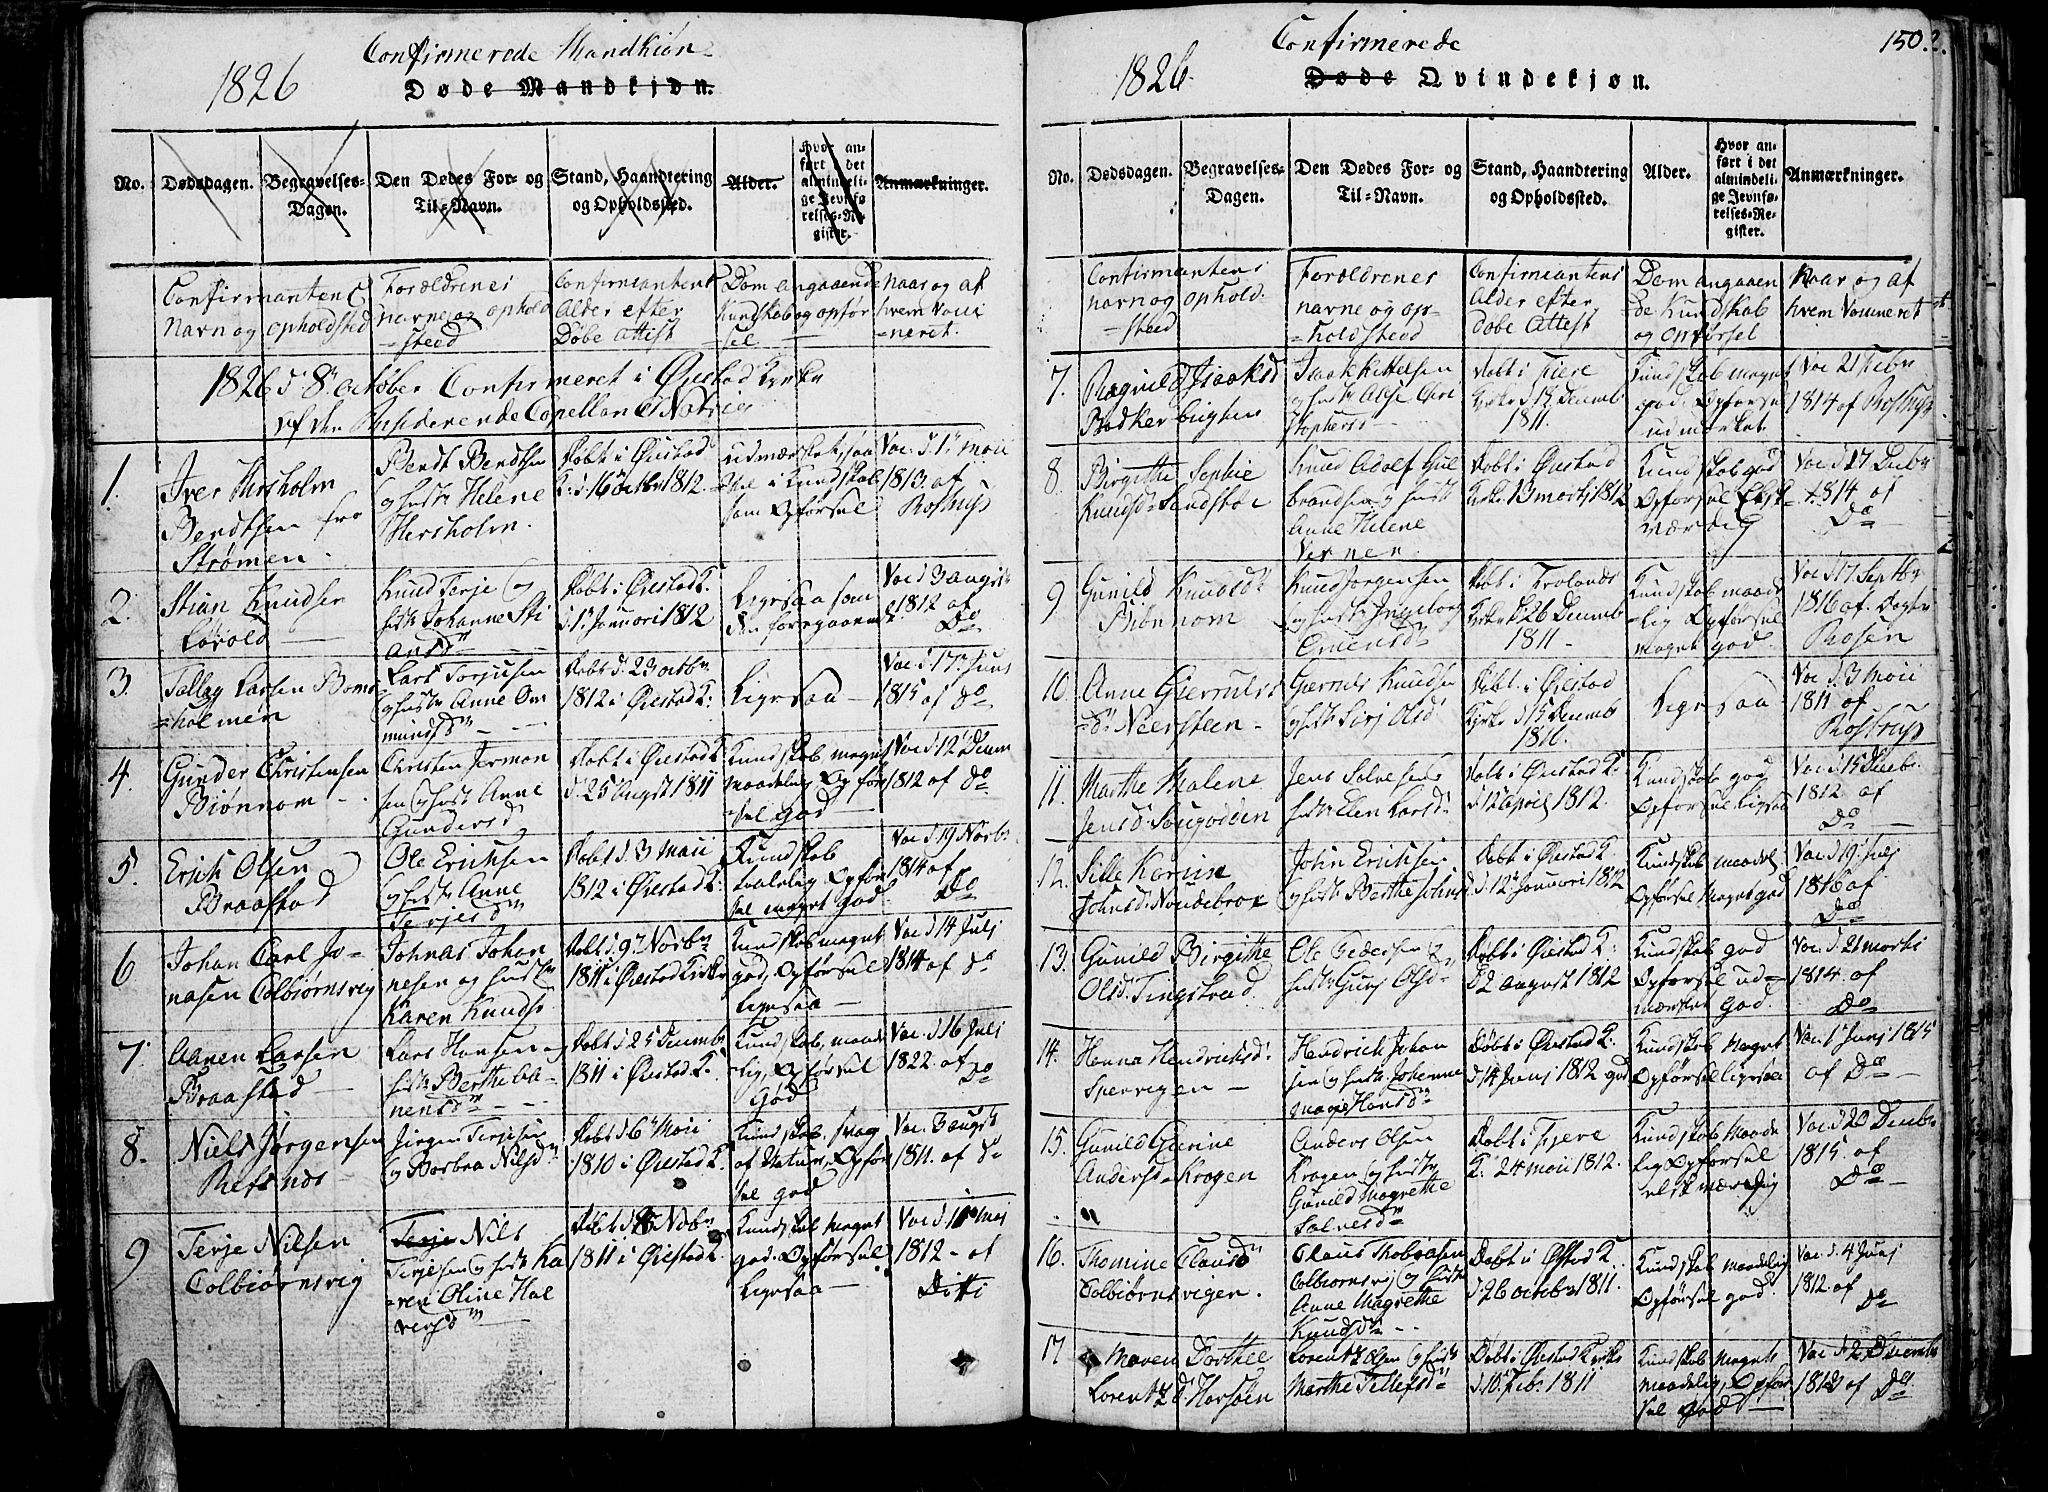 Confirmerede Mandkiøn
1826
Døde Mandkjøn.
No.
Dødsdagen.
Begravelses-
Dagen.
Den Dødes For- og
Til-Navn.
Stand, Haandtering
og Opholdssted.
Alder.
Hvor an-
ført i det
almindeli-
ge Jevnfø-
relses-Re-
gister.
Anmærkninger.
Confirmantens
Navn og opholdsted
Forældrenes
navne og ophold
-steed
Confirmantens
Alder efter
Døbe Attest
Dom angaaende
Kundskab og opfør
-sel
naar og af
hvem Vacci
-neret.
1826 d 8 october Confirmeret i Øiestad Kirke
af den Residerende Capellan
1.
Iver Hersholm
Bendtsen fra
Strømen
Bendt Bendtsen
og hustr Helene
Hersholm.
Døbt i Øiestad
K: d. 16 octbr 1812.
udmærket, saa
-vel i Kundskab
som Opførsel
Vac. d. 1 maii
1813. af
Rostrup
2.
Stian Knudsen
Knud Terje og
hust Johanne Sti
ansd
Døbt i Øiestad K.
d. 1 Januari 1812
Ligesaa som
den foregaaende
Vac d 3 august
1812 af
Do
3.
Tellag Larsen Bom
-holmen
Lars Torjusen
og hustr Anne Om
mundsd
Døbt d. 23 octbr
1812 i Øiestad K:
Ligesaa
Vac d. 17 Juni
1815 af Do
4.
Gunder Christensen
Biønnom
Christen Jermon
sen og hust Anne
Gundersd
Døbt i Øiestad K
d. 25 August 1811
Kundskab meget
maadelig Opfør
-sel god
Vac d. 12 Decem
1812 af Do
5.
Erich Olsen
Braastad
Ole Erichsen
og hustr Anne
Terjesd
Døbt d. 3 Maii
1812 i Øiestad K:
Kundskab
taalelig Opfør
sel meget god.
Vac d. 19 Novbr
1814 af
Do
6
Johan Carl Jo-
nasen Colbiørnsvig
Johnas Johan
nesen og hustr
Karen Knuds
Døbt d. 9 Novbr
1811 i Øiestad Kirke
Kundskab meget
god, Opførsel
Ligesaa
Vac d. 14 Julj
1814 af Do
7.
Aanen Larsen
Braastad
Lars Hansen og
hustr Berthe Aa-
nensd
Døbt d. 25 Decembr
1811 i Øiestad K
Kundskab, maade
-lig, Opførsel
God
Vac. d. 16 Julj
1822. af
Do
8.
Niels Jørgensen
Refsnæs
Jørgen Terjesen
og Barbra Nilsd
Døbt d. 6 Maii
1810 i Øiestad K.
Kundskab, svag
af Natur, Opfør
sel god
Vac. 3 august
1811. af Do
9
Terje Nilsen
Colbiørnsvig
Terje Nils
Terjesen og hust Ka
-ren Oline Hal
versd
Døbt d. 8 Novbr
1811 i Øiestad K.
Kundskab meget
god. Opførsel
Ligesaa
Vac d. 10 Maj
1812 - af
Ditti
Confirmerede
150.
1826.
Døde Qvindekjøn.
No.
Dødsdagen.
Begravelses-
Dagen.
Den Dødes For- og
Til-Navn.
Stand, Haandtering
og Opholdssted.
Alder.
Hvor an-
ført i det
almindeli-
ge Jevnfø-
relses-Re-
gister.
Anmærkninger.
Confirmantens
navn og ophold.
-steed
Forældrenes
navne og op-
-hold steed
Confirmantens
Alder efter
døbe Attest
Dom angaaen
de Kundskab
og opførsel
Naar og af
hvem Vacineret
7.
Ragnild Isaaksd
Bødkerbugten
Isaak Kittelsen
og hustr Alse Chri
stophersd
Døbt i Fiere
Kirke d 15 Decembr
1811.
Kundskab meget
god Opførsel
udmærket
Vac 21 Febr
1814 af Rostrup
8
Birgithe Sophie
Knudsd Sandstø
Knud Adolf Gul
brandsen og hustr
Anne Helene
Verner
Døbt i Øiestad
Kirke 13 martj 1812
Kundskab god
Opførsel Elsk
værdig
Vac d 17 Decbr
1814 af
Do
9
Gunild Knudsd
Biønnom
Knud Jørgensen
og hustr Ingeborg
Døbt i Frolands
Kirke d. 26 Decembr
1811 -
Kundskab maade
-lig Opførsel
meget god.
Vac d 17 Septbr
1816 af. Dagfin
Rosen
10
Anne Gierruls
-d. Neersteen -
Gierruls Knudsen
og hustr Siri Olsd
Døbt i Øiestad
Kirke d 15 Decembr
1810.
Ligesaa
Vac d. 3 Maii
1811 af
Rostrup
11.
Marthe Malene
Jensd. Songodden
Jens Salvesens
hustr Elen Larsd
Døbt i Øiestad K.
d. 12 April 1812.
Kundskab god
Opførsel ligesaa
Vac d. 15 Decbr.
1812 af
Do
12.
Sille Karine
Johnsd. Noudebroe
John Erichsen
og hustr Berthe Johnsd
Døbt i Øiestad K
d. 12 Januari 1812
Kundskab maadel
Opførsel meget god
Vac d. 19 Julj
1816 af
Do
13.
Gunild Birgithe
Olsd. Tingstvad.
Ole Pedersen og
hustr Guri Olsd
Døbt i Øiestad K:
d 2 august 1812
Kundskab god
Opførsel ud-
mærket god.
Vac d. 21 martj
1814. af
Do
14.
Hanna Hendrichsd.
Spervigen -
Hendrich Johan
sen og hustr Johanne
Marje Hansd
Døbt i Øiestad K:
d. 14 Junj 1812
Kundskab meget god
Opførsel ligesaa
Vac 1 Junj 1815
af Do
15.
Gunild Gurine
Andersd Krogen
Anders Olsen
Krogen og hustr
Gunild Magrethe
Salvesd
Døbt i Fjere
K: 24 maii 1812.
Kundskab Maade
lig Opførsel
elskværdig
Vac d 20 Decembr
1815. af
Do
16.
Thomine Clausd
Colbiørnsvigen.
Claus Thobiasen
Colbiørnsvig og hustr
Anne Magrethe
Knudsd
Døbt i Øistad K.
d. 26 octobr 1811.
Kundskab maadelig
Opførsel god.
Vac d. 4 Junj
1812 af
Do
17
Maren Dorthee
Lorentzd. Harsøen
Lorentz Olsen og hustr
Marthe Tellefsd
Døbt i Øiestad Kirke
d. 10 Febr 1811
Kundskab meget
maadelig, Opfør
sel god
Vac d 2 Decembr
1812 af Do